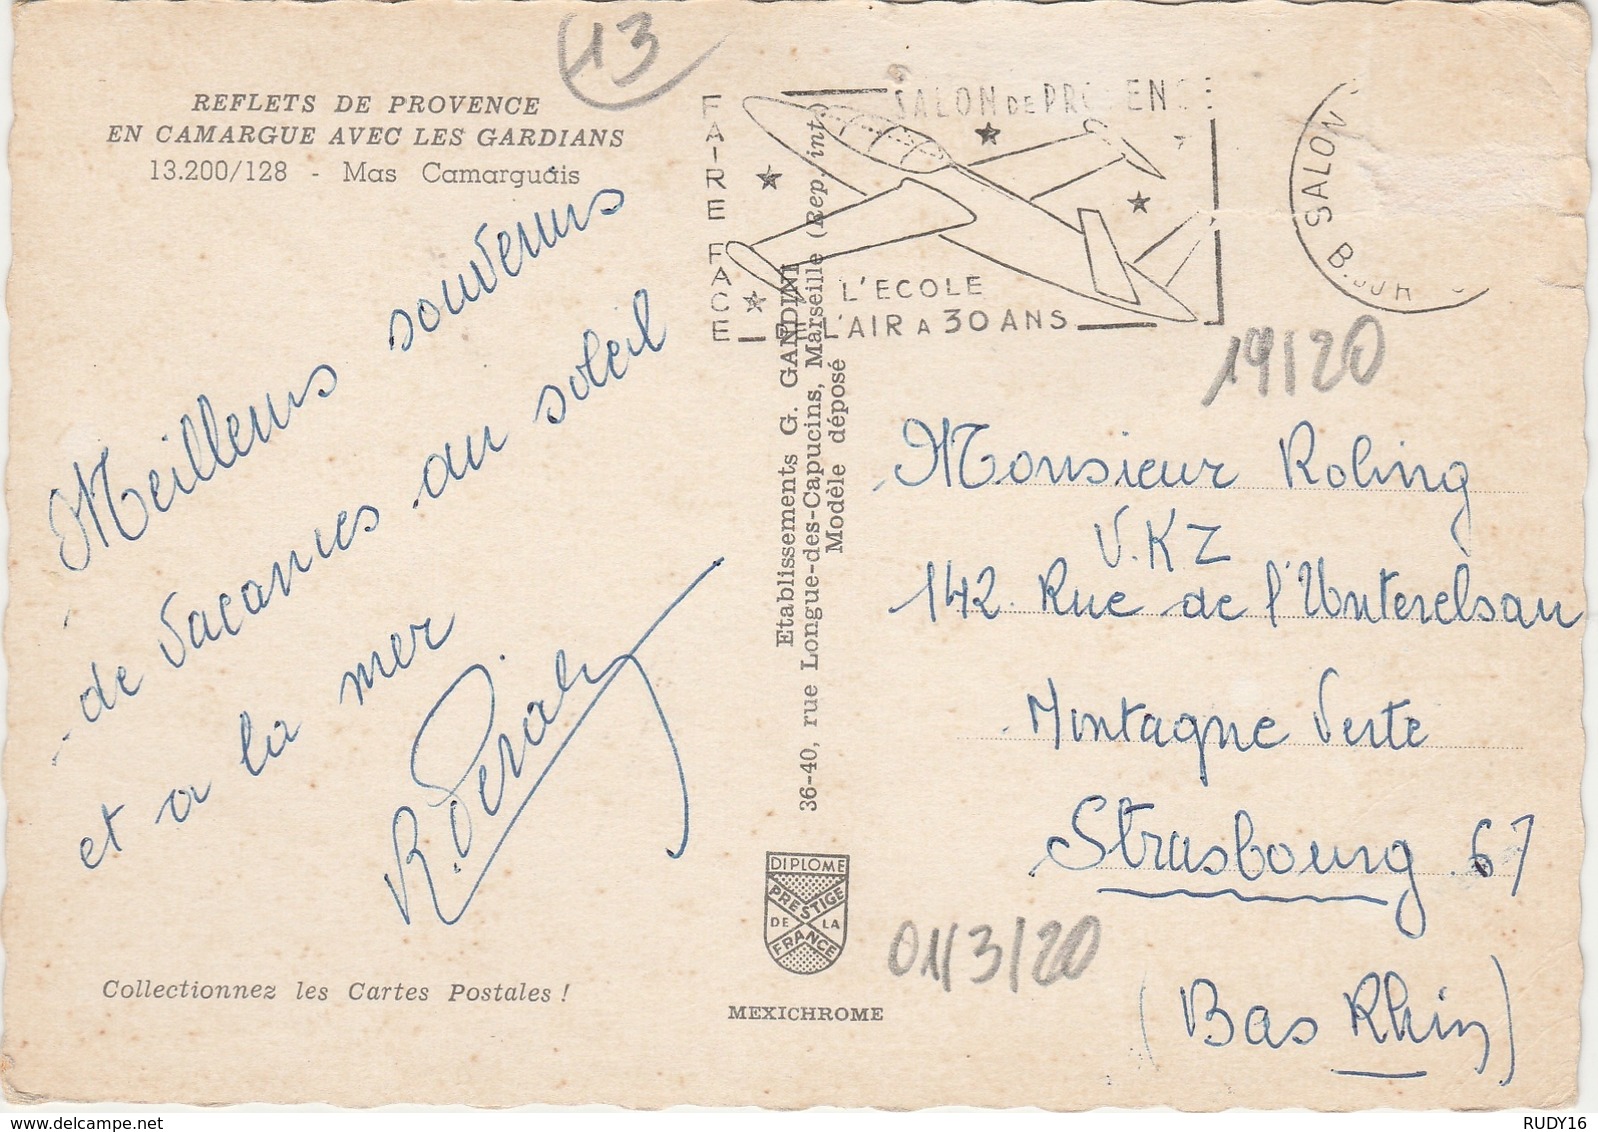 13
REFLETS DE PROVENCE
EN CAMARGUE AVEC LES GARDIANS
13.200/128 - Mas Camarguais
Meilleurs souvenirs
de vacances au soleil
et a la mer
Collectionnez les Cartes Postales !
FAIRE FACE
SALON DE PROVENCE
L'ECOLE
DE L'AIR A 30 ANS
SALON
B. DU R
Etablissements G. GANDINI
36-40, rue Longue-des-Capucins, Marseille (Rep. int.)
Modèle déposé
DIPLOME
PRESTIGE
DE LA
FRANCE
MEXICHROME
19/20
Monsieur Roling
V.K Z
142 Rue de l'Unterelsau
Montagne Verte
Strasbourg 67
(Bas Rhin)
01/3/20
www.delcampe.net
RUDY16